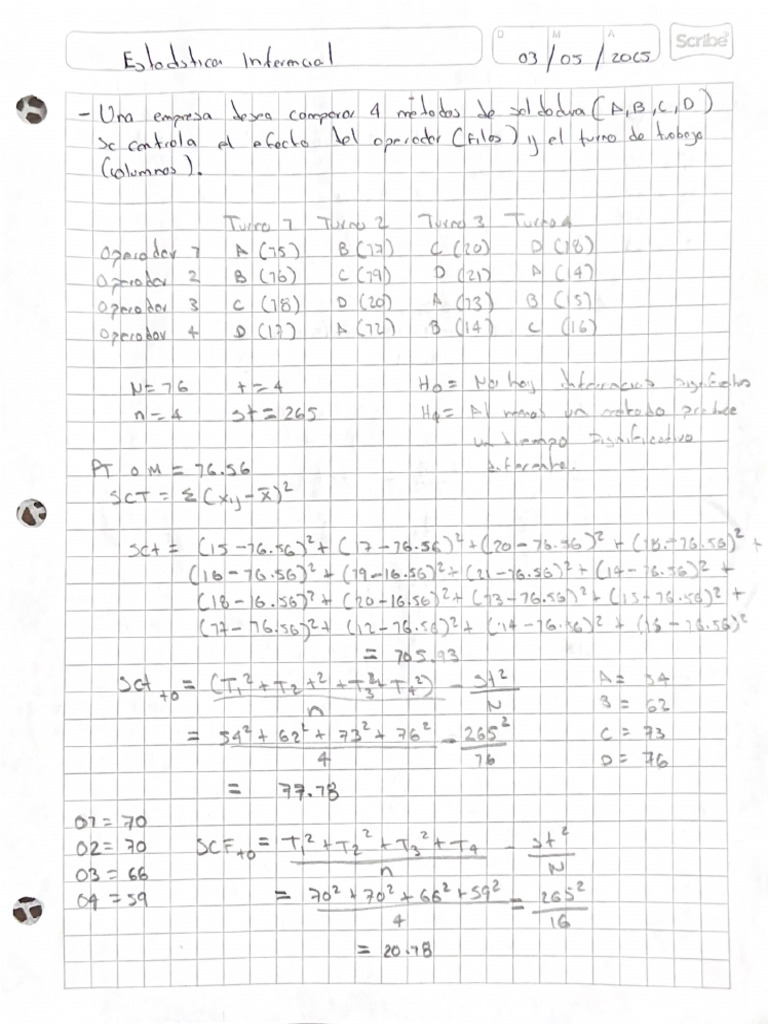 D M A
Scribe
Estadística Inferencial 03/05/2005
- Una empresa desea comparar 4 métodos de soldadura (A,B,C,D)
se controla el efecto del operador (filas) y el turno de trabajo
(columnas).
Turno 1 Turno 2 Turno 3 Turno 4
Operador 1 A (15) B (17) C (20) D (18)
Operador 2 B (16) C (19) D (21) A (14)
Operador 3 C (18) D (20) A (13) B (15)
Operador 4 D (17) A (12) B (14) C (16)
N=16 t=4 H0= No hay diferencias significativas
n=4 st=265 H1= Al menos un metodo produce
un tiempo significativo
diferente.
PT O M = 16.56
SCT = Σ(xij-x̄)²
Sct = (15-16.56)²+(17-16.56)²+(20-16.56)²+(18-16.56)²+
(16-16.56)²+(19-16.56)²+(21-16.56)²+(14-16.56)²+
(18-16.56)²+(20-16.56)²+(13-16.56)²+(15-16.56)²+
(17-16.56)²+(12-16.56)²+(14-16.56)²+(16-16.56)²
= 105.93
Sct to = (T1²+T2+²+T3²+T4²)/n - st²/N A= 54
B= 62
= 54²+62²+73²+76²/4 - 265²/16 C= 73
D= 76
= 77.18
O1=70
O2=70 SCF to = T1²+T2²+T3²+T4/n - st²/N
O3=66
O4=59 = 70²+70²+66²+59²/4 = 265²/16
= 20.18